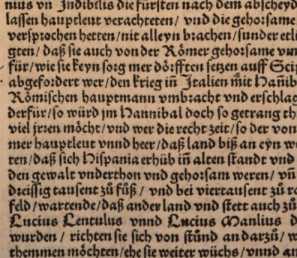 nius vn̄ Indibilis die fürsten nach dem abscheyd
lassen hauptleut verachteten / vnd die gehorsame
versprochen hetten / nit alleyn brachen / sunder etli
gten / daß sie auch von der Römer gehorsame vnn
für / wie sie keyn sorg mer dörfften setzen auff Scip
abgefordert wer / den krieg in̄ Italien mit Hanib
Römischen hauptmann vmbracht vnd erschlag
derfür / so würd jm Hannibal doch so getrang th
viel jrsen möcht / vnd wer die recht zeit / so der vorn
mer hauptleut vnnd heer / daß land biß an eyn we
ten / daß sich Hispania erhüb in̄ alten standt vnd
den gewalt vnderthon vnd gehorsam weren / vn̄
dreissig tausent zů fůß / vnd bei viertausent zů ro
feld / wartende / daß ander land vnd stett auch zů
Lucius Lentulus vnnd Lucius Manlius d
wurden / richten sie sich von stůnd an darzů / w
themmen möchten / ehe sie weiter wüchs / vnnd an